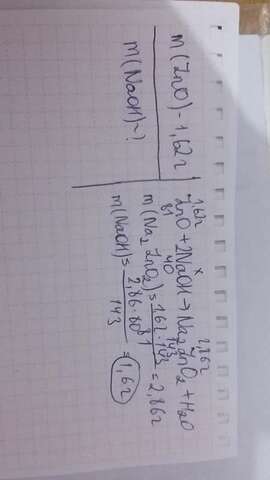 m(ZnO)-1,62г
m(NaOH)~?
1,62г x 2,86г
ZnO + 2NaOH → Na₂ZnO₂ + H₂O
81 40 143
m(Na₂ZnO₂) = 1,62·143/81 = 2,86г
m(NaOH) = 2,86·80/143 = 1,6г